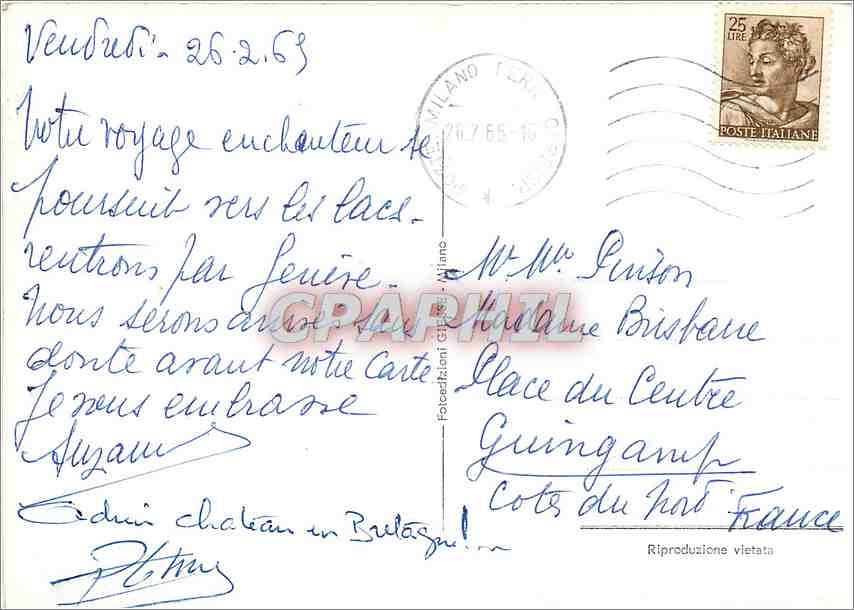 Vendredi - 26.2.65
Notre voyage enchanteur se
poursuit vers les lacs -
rentrons par Genève -
Nous serons arrivés sans
doute avant notre carte
Je vous embrasse
Suzanne
château en Bretagne!
25
LIRE
POSTE ITALIANE
MILANO FERR. CORRISP.
26.7.65-1
Fotoedizioni - Milano
CPAPHIL
Mr Mme Pinson
Madame Brisbane
Place du Centre
Guingamp
Cotes du Nord
France
Riproduzione vietata